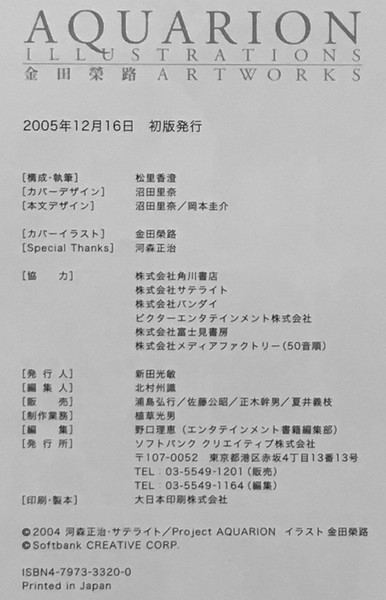 AQUARION
ILLUSTRATIONS
金田榮路 ARTWORKS
2005年12月16日　初版発行
[構成・執筆]　松里香澄
[カバーデザイン]　沼田里奈
[本文デザイン]　沼田里奈／岡本圭介
[カバーイラスト]　金田榮路
[Special Thanks]　河森正治
[協　力]　株式会社角川書店
株式会社サテライト
株式会社バンダイ
ビクターエンタテインメント株式会社
株式会社富士見書房
株式会社メディアファクトリー（50音順）
[発 行 人]　新田光敏
[編 集 人]　北村州識
[販　売]　浦島弘行／佐藤公昭／正木幹男／夏井義枝
[制作業務]　植草光男
[編　集]　野口理恵（エンタテインメント書籍編集部）
[発 行 所]　ソフトバンク クリエイティブ株式会社
〒107-0052　東京都港区赤坂4丁目13番13号
TEL：03-5549-1201（販売）
TEL：03-5549-1164（編集）
[印刷・製本]　大日本印刷株式会社
©2004 河森正治・サテライト／Project AQUARION　イラスト 金田榮路
©Softbank CREATIVE CORP.
ISBN4-7973-3320-0
Printed in Japan